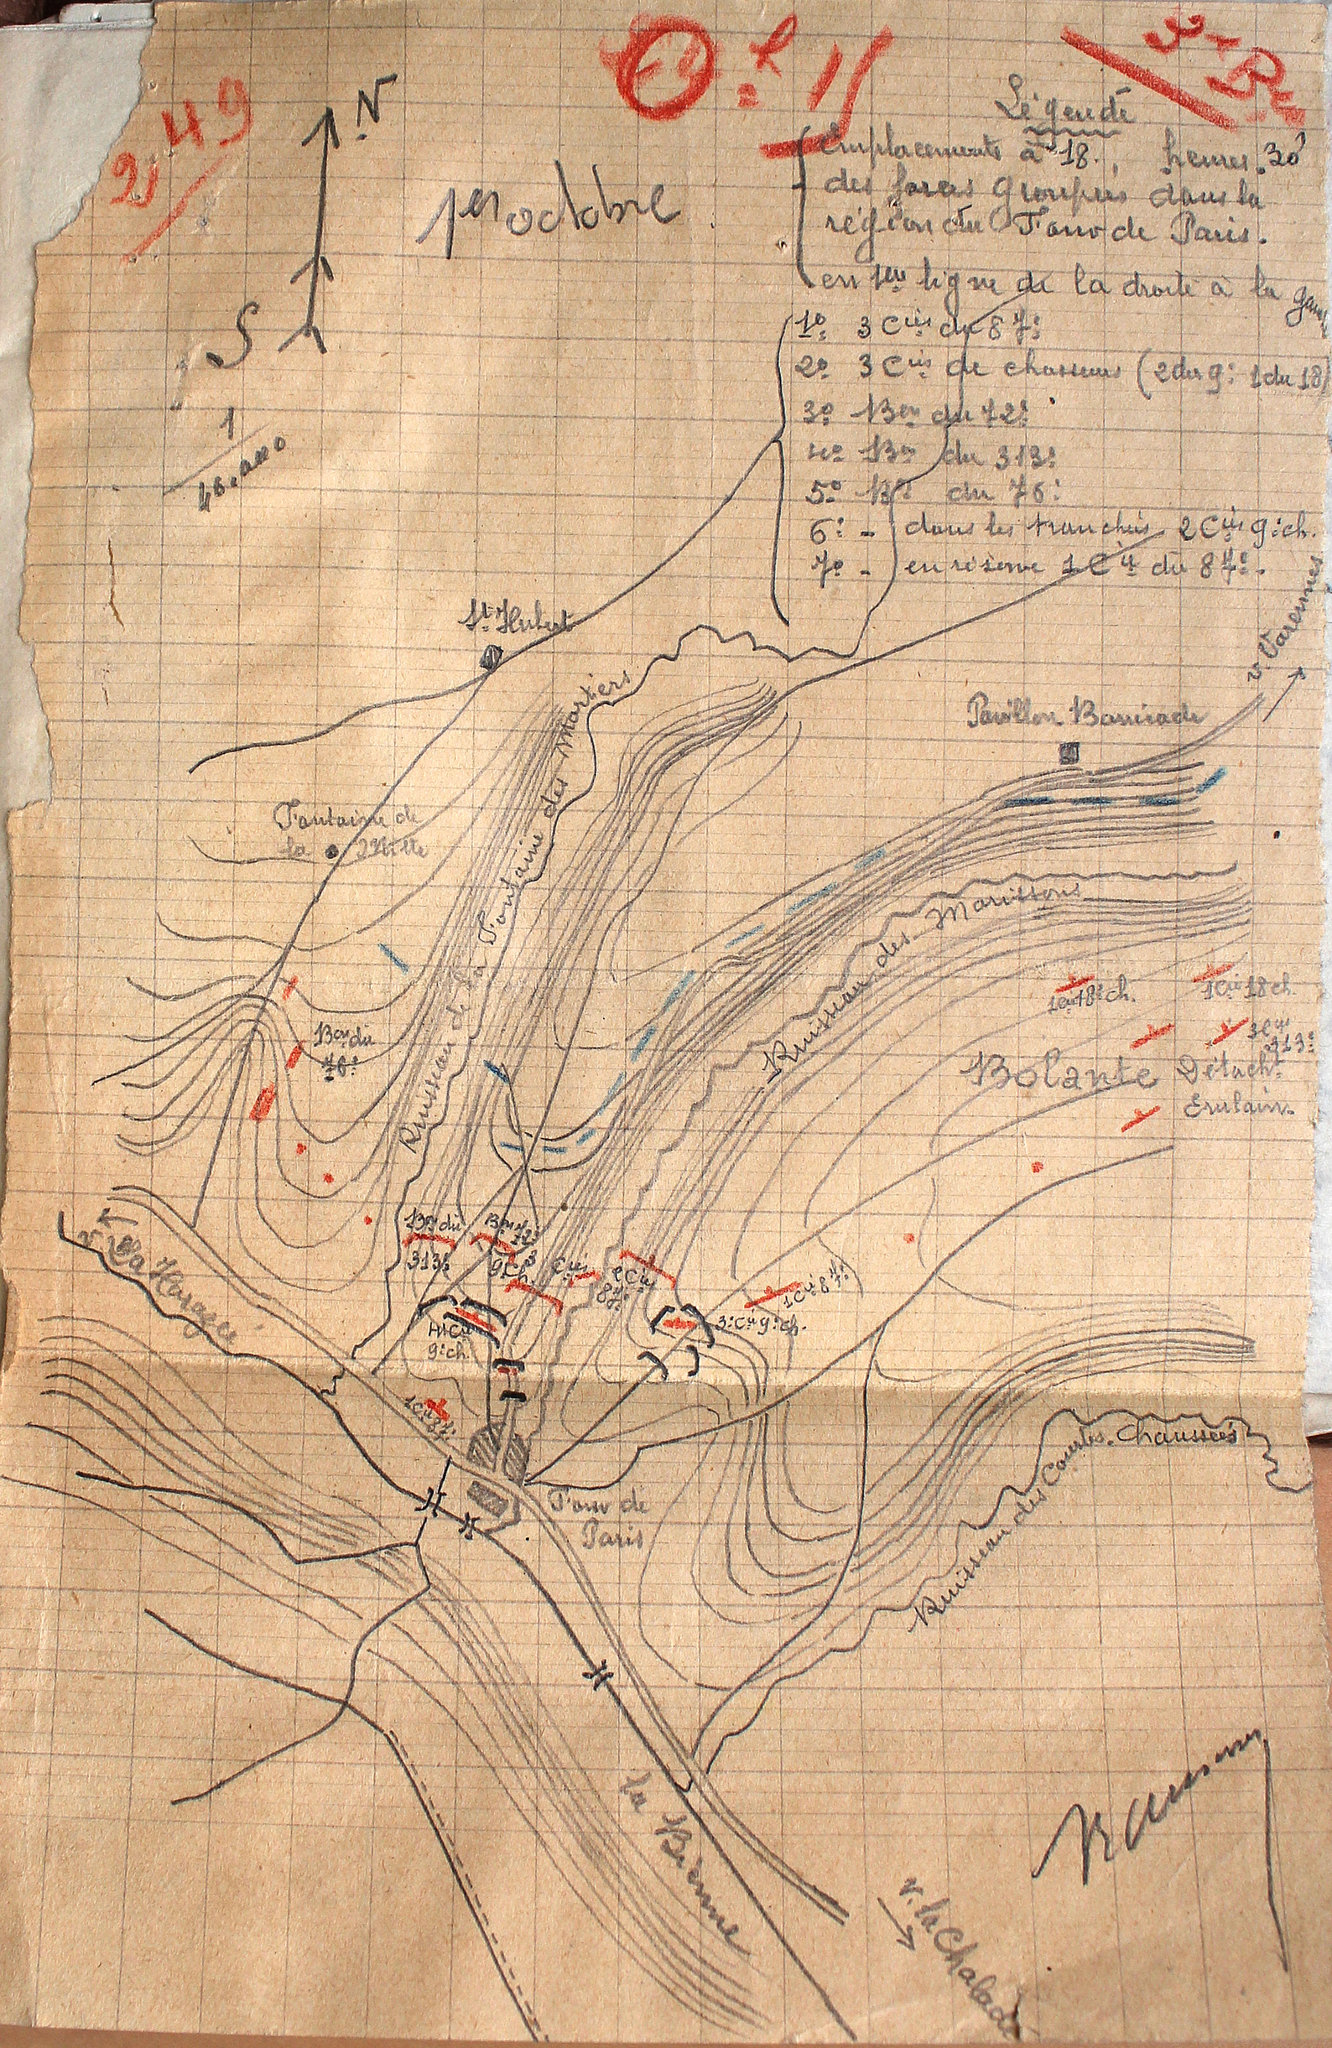 249
N
S
1er octobre
1
Légende
Emplacements à 18. heures 30
des forces groupées dans la
région du Four de Paris.
en 1ère ligne de la droite à la
1o 3 Cies du 87e
2o 3 Cies de chasseurs (2 du 9e 1 du 18)
3o Bon du 72e
4o Bon du 313e
5o Bon du 76e
6o - dans les tranchées 2 Cies 9e ch.
7o - en réserve 1 Cie du 87e -
St Hubert
v Varennes
Pavillon Barricade
Fontaine de
la Mitte
Ruisseau de la Fontaine des Mortiers
Ruisseau des Marissons
1 Cie 18e ch.
1 Cie 18 ch.
Bon du
76e
Bolante
3 Cies
313e
Détacht
Bon du
313e
Bon 72e
9e Ch.
3 Cies
2 Cies
87e
1 Cie 87e
3e Cie 9e ch.
4e Cie
9e ch.
v La Harazée
Four de
Paris
Ruisseau des Courtes Chaussées
la Bienne
v. la Chalade